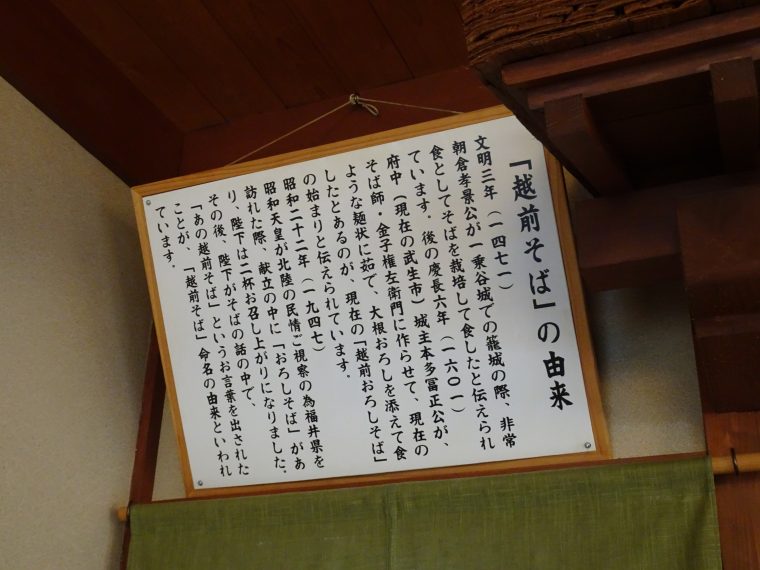 「越前そば」の由来
文明三年（一四七一）
朝倉孝景公が一乗谷城での籠城の際、非常
食としてそばを栽培して食したと伝えられ
ています。後の慶長六年（一六〇一）
府中（現在の武生市）城主本多冨正公が、
そば師・金子権左衛門に作らせて、現在の
ような麺状に茹で、大根おろしを添えて食
したとあるのが、現在の「越前おろしそば」
の始まりと伝えられています。
昭和二十二年（一九四七）
昭和天皇が北陸の民情ご視察の為福井県を
訪れた際、献立の中に「おろしそば」があ
り、陛下は二杯お召し上がりになりました。
その後、陛下がそばの話の中で、
「あの越前そば」というお言葉を出された
ことが、「越前そば」命名の由来といわれ
ています。